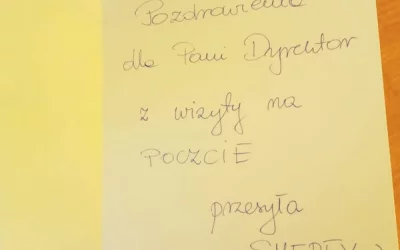 Pozdrowienia
dla Pani Dyrektor
z wizyty na
POCZCIE
przesyła